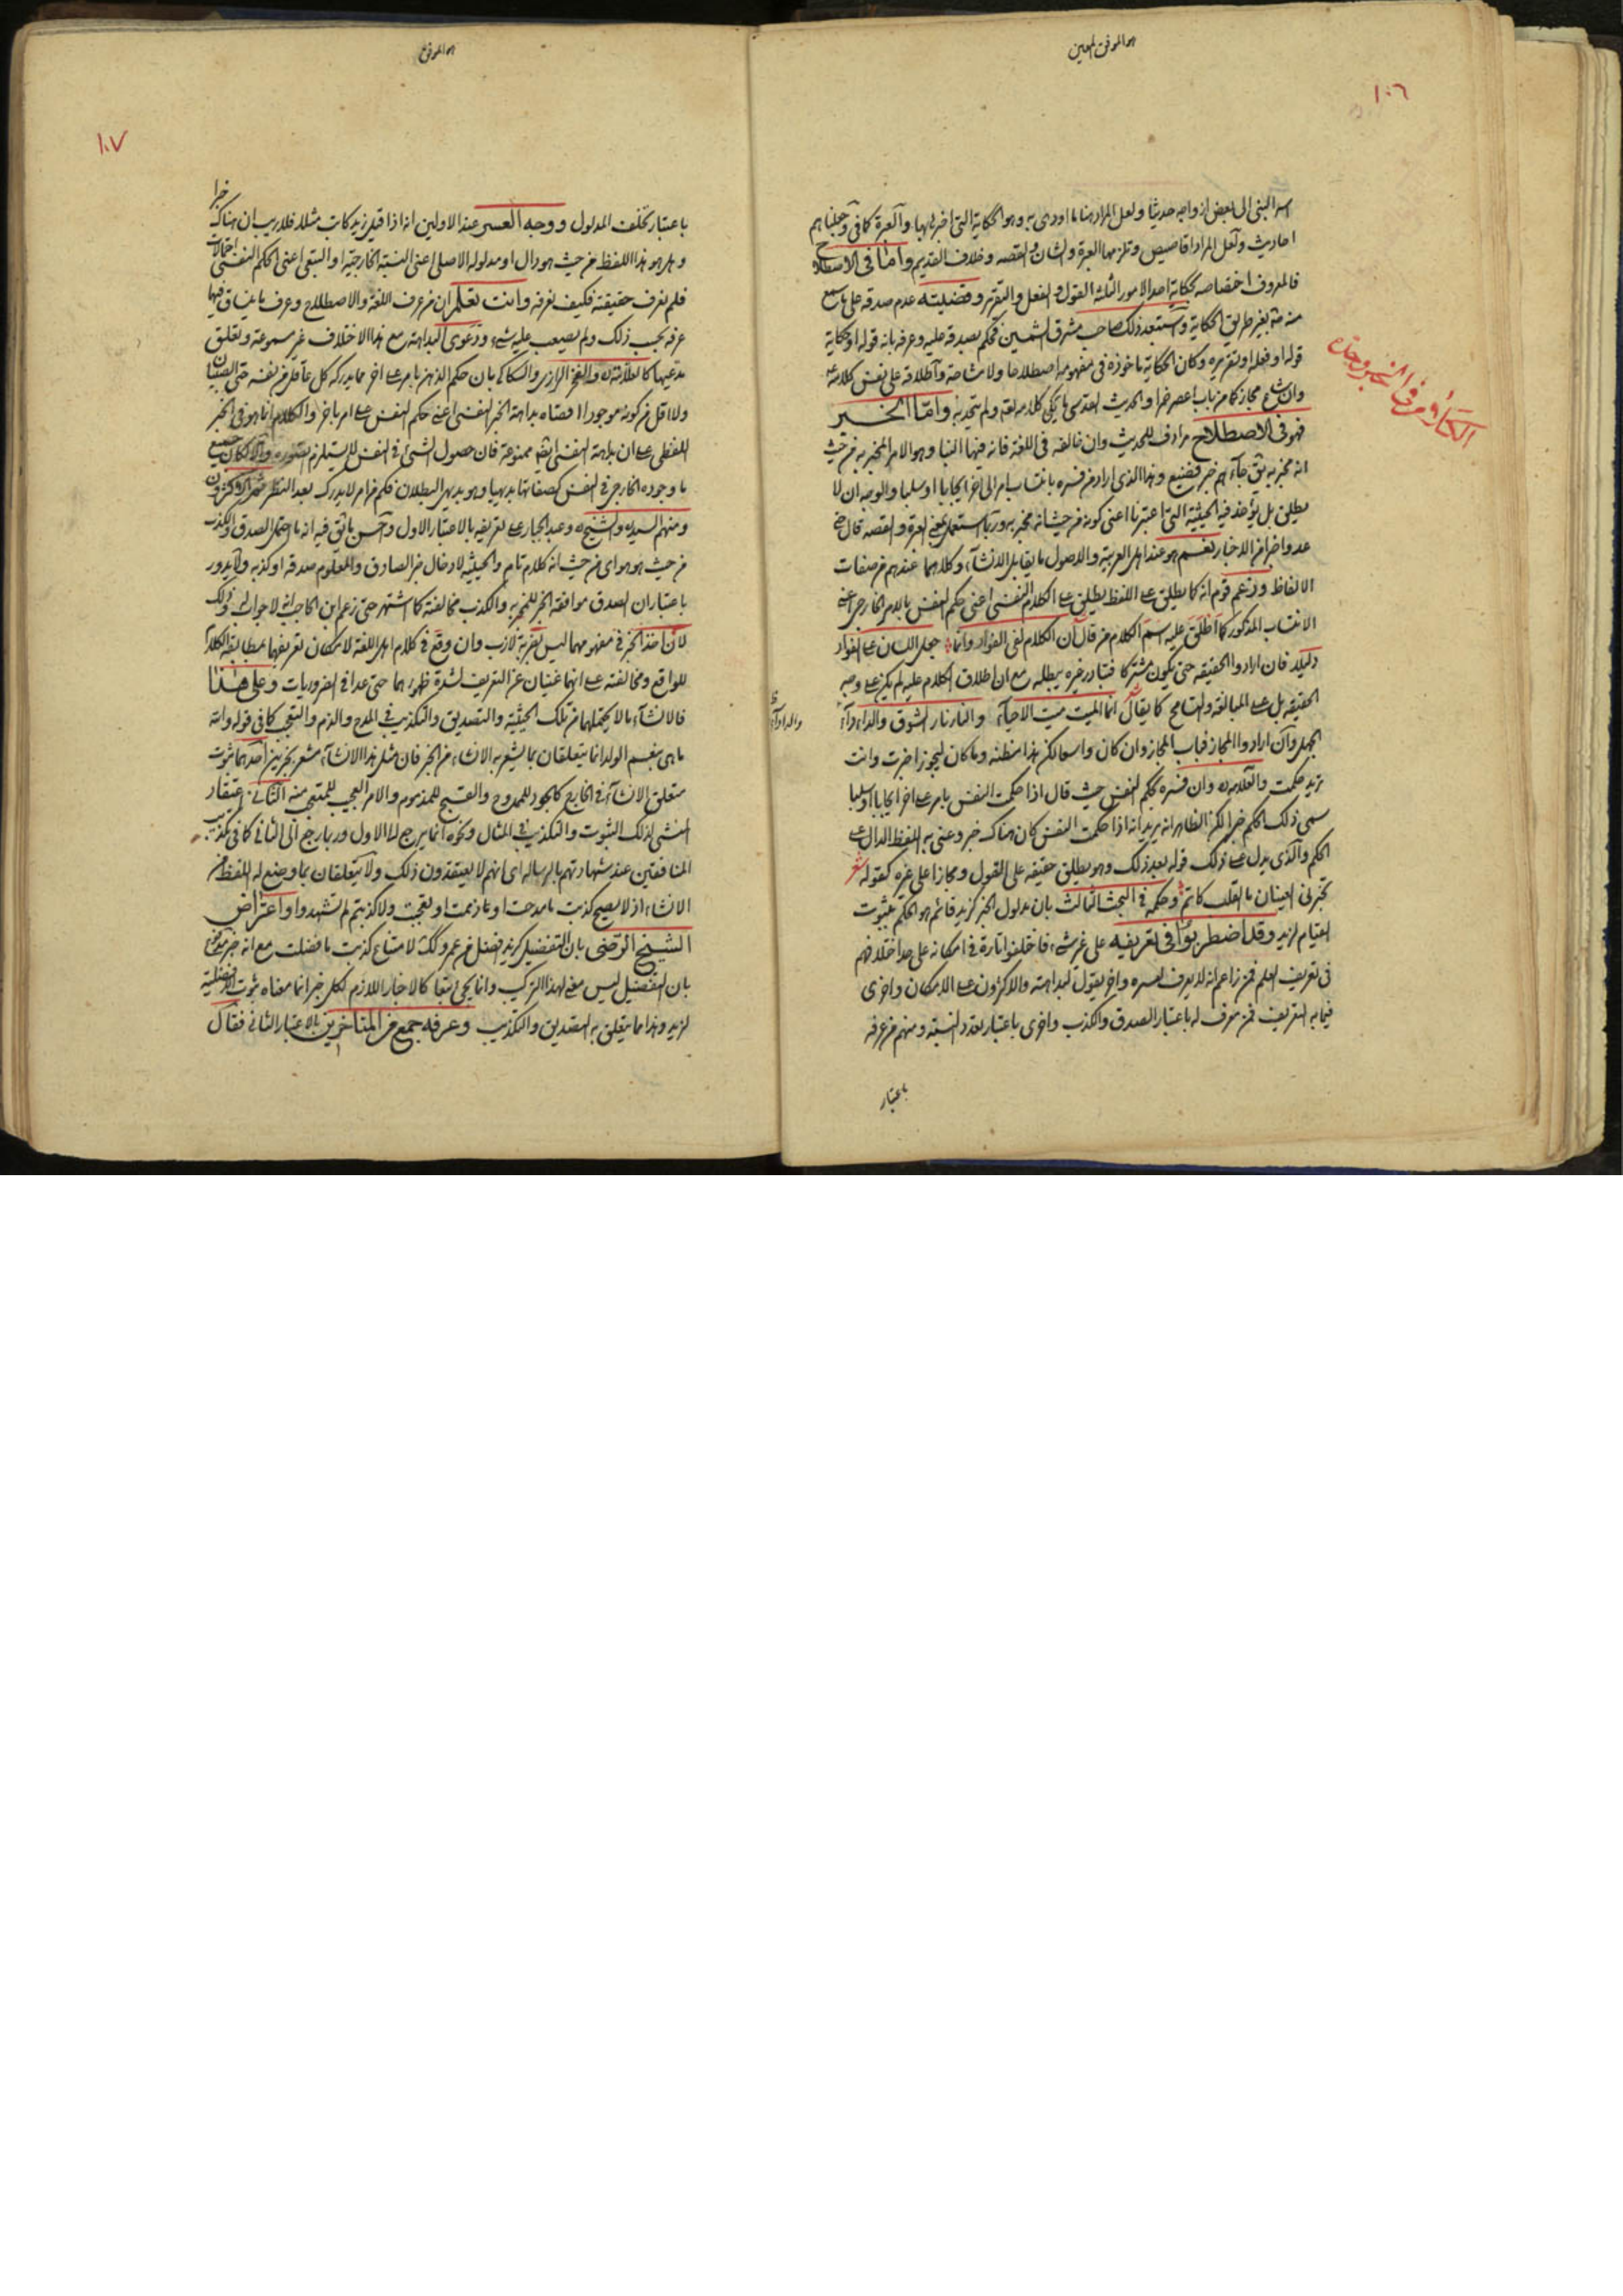 هو الموفق المعين
١٠٦
اسر النبى الى بعض ازواجه حديثا ولعل المراد هنا ما اوحى به وهو الحكاية التى اخبر بها والعبرة كما فى وجعلناهم
احاديث ولعل المراد اقاصيص وتلزمها العبرة والشان والقصه وخلاف القديم واما فى الاصطلاح
فالمعروف اختصاصه بحكاية احد الامور الثلثة القول والفعل والتقرير وقضيته عدم صدقه على ما سمع
منه بغير طريق الحكاية واستبعد ذلك صاحب مشرق الشمسين فحكم بصدقه عليه وعرفه بانه قوله او حكاية
قوله او فعله او تقريره وكان الحكاية ماخوذة فى مفهومه اصطلاحا ولا مشاحة واطلاقه على نفس كلامه
وان شئت مجاز كما من باب اعصر خمرا والحديث القدسى ما يحكى كلامه تعالى ولم يتحد به واما الخبر
فهو فى الاصطلاح مرادف للحديث وان خالفه فى اللغة فانه فيها النبا وهو الامر المخبر به من حيث
انه مخبر به يق جاءهم خبر فضيع وهذا الذى اراد من فسره بانتساب امر الى اخر ايجابا او سلبا والوجه ان لا
يطلق بل يؤخذ فيه الحيثية التى اعتبرنا اعنى كونه من حيث انه مخبر به وربما استعمل بمعنى العبرة والقصه قال
عد واخبر من الاخبار نعم هو عند اهل العربية والاصول ما يقابل الانشاء وكلاهما عندهم من صفات
الالفاظ وزعم قوم انه كما يطلق على اللفظ يطلق على الكلام النفسى اعنى حكم النفس بالامر الخارجى اعنى
الانتساب المذكور كما اطلق عليه اسم الكلام من قال ان الكلام لفى الفواد وانما جعل اللسان على الفواد
دليلا فان ارادوا الحقيقه حتى يكون مشتركا فتبادر غيره يبطله مع ان اطلاق الكلام عليه لم يكن على وجه
الحقيقه بل على المبالغه والتسامح كما يقال انما الميت ميت الاحياء والنار نار الشوق والداء داء
الجهل وان ارادوا المجاز فباب المجاز وان كان واسعا لكن هذا مظنته وما كان ليجوز اخبرت وانت
تريد حكمت والعلامه وان فسره بحكم النفس حيث قال اذا حكمت النفس بامر على اخر ايجابا او سلبا
سمى ذلك الحكم خبرا لكن الظاهر انه يريد انه اذا حكمت النفس كان هناك خبر وعنى به اللفظ الدال على
الحكم والذى يدل على ذلك قوله بعد ذلك وهو يطلق حقيقه على القول ومجازا على غيره كقوله شعر
تخبرنى العينان ما القلب كاتم وحكمه فى البحث الثالث بان مدلول الخبر كزيد قائم هو الحكم بثبوت
القيام لزيد وقد اضطربوا فى تعريفه على غير شىء فاختلفوا تارة فى امكانه على حد اختلافهم
فى تعريف العلم فمن زاعم انه لا يعرف لعسره واخر يقول لبداهته والاكثرون على الامكان واخرى
فيما به التعريف فمن معرف له باعتبار الصدق والكذب واخرى باعتبار تعدد النسبة ومنهم من عرفه
باعتبار
والداء داء
الكلام فى الخبر وحده
هو الموفق
١٠٧
باعتبار تخلف المدلول ووجه العسر عند الاولين انه اذا قيل زيد كاتب مثلا فلا ريب ان هناك خبرا
وهل هو هذا اللفظ من حيث هو دال او مدلوله الاصلى اعنى النسبة الخارجية او التبعى اعنى الحكم النفسى احتمالات
فلم نعرف حقيقته فكيف نعرفه وانت تعلم ان من عرف اللغة والاصطلاح وعرف ما يساق فيهما
عرف بحسب ذلك ولم يصعب عليه شىء ودعوى البداهة مع هذا الاختلاف غير مسموعة وتعلق
مدعيها كالعلامه والفخر الرازى والسكاكى بان حكم الذهن بامر على اخر مما يدركه كل عاقل من نفسه حتى الصبيان
ولا اقل من كونه موجود اقصاه بداهة الخبر النفسى اعنى حكم النفس على امر باخر والكلام انما هو فى الخبر
اللفظى على ان بداهة النفسى ايضا ممنوعة فان حصول الشىء فى النفس لا يستلزم تصوره والا لكان جميع
ما وجوده الخارجى فى النفس كصفاتها بديهيا وهو بديهى البطلان فكم من امر لا يدرك بعد النظر ثم الاكثرون
ومنهم السيد والشيخ وعبد الجبار على تعريفه بالاعتبار الاول واحسن ما يق فيه انه ما احتمل الصدق والكذب
من حيث هو هو اى من حيث انه كلام تام والحيثية لادخال خبر الصادق والمعلوم صدقه او كذبه ولا يدور
باعتبار ان الصدق موافقة الخبر للمخبر به والكذب مخالفته كما اشتهر حتى زعم ابن الحاجب انه لا جواب له وذلك
لان اخذ الخبر فى مفهومهما ليس بضربة لازب وان وقع فى كلام اهل اللغة لامكان تعريفهما بمطابقة الكلام
للواقع ومخالفته على انهما غنيان عن التعريف لشدة ظهورهما حتى عدا فى الضروريات وعلى هذا
فالانشاء ما لا يحتملهما من تلك الحيثية والتصديق والتكذيب فى المدح والذم والتعجب كما فى قوله والله
ما هى بنعم الولد انما يتعلقان بما يشعر به الانشاء من الخبر فان مثل هذا الانشاء مشعر بخبرين احدهما ثبوت
متعلق الانشاء فى الخارج كالجود للممدوح والقبيح للمذموم والامر العجيب للمتعجب منه الثانى اعتقاد
المنشى لذلك الثبوت والتكذيب فى المثال ونحوه انما يرجع الى الاول وربما رجع الى الثانى كما فى تكذيب
المنافقين عند شهادتهم بالرساله اى انهم لا يعتقدون ذلك ولا يتعلقان بما وضع له اللفظ من
الانشاء اذ لا يصح كذبت ما مدحت او ما ذممت او تعجبت ولا كذبتم لم تشهدوا واعتراض
الشيخ الرضى بان التفضيل كزيد افضل من عمرو كك لامتناع كذبت ما فضلت مع انه خبر مدفوع
بان التفضيل ليس معنى لهذا التركيب وانما يجىء تبعا كالاخبار اللازم لكل خبر انما معناه ثبوت الافضلية
لزيد وهذا مما يتعلق به التصديق والتكذيب وعرفه جمع من المتاخرين بالاعتبار الثانى فقال